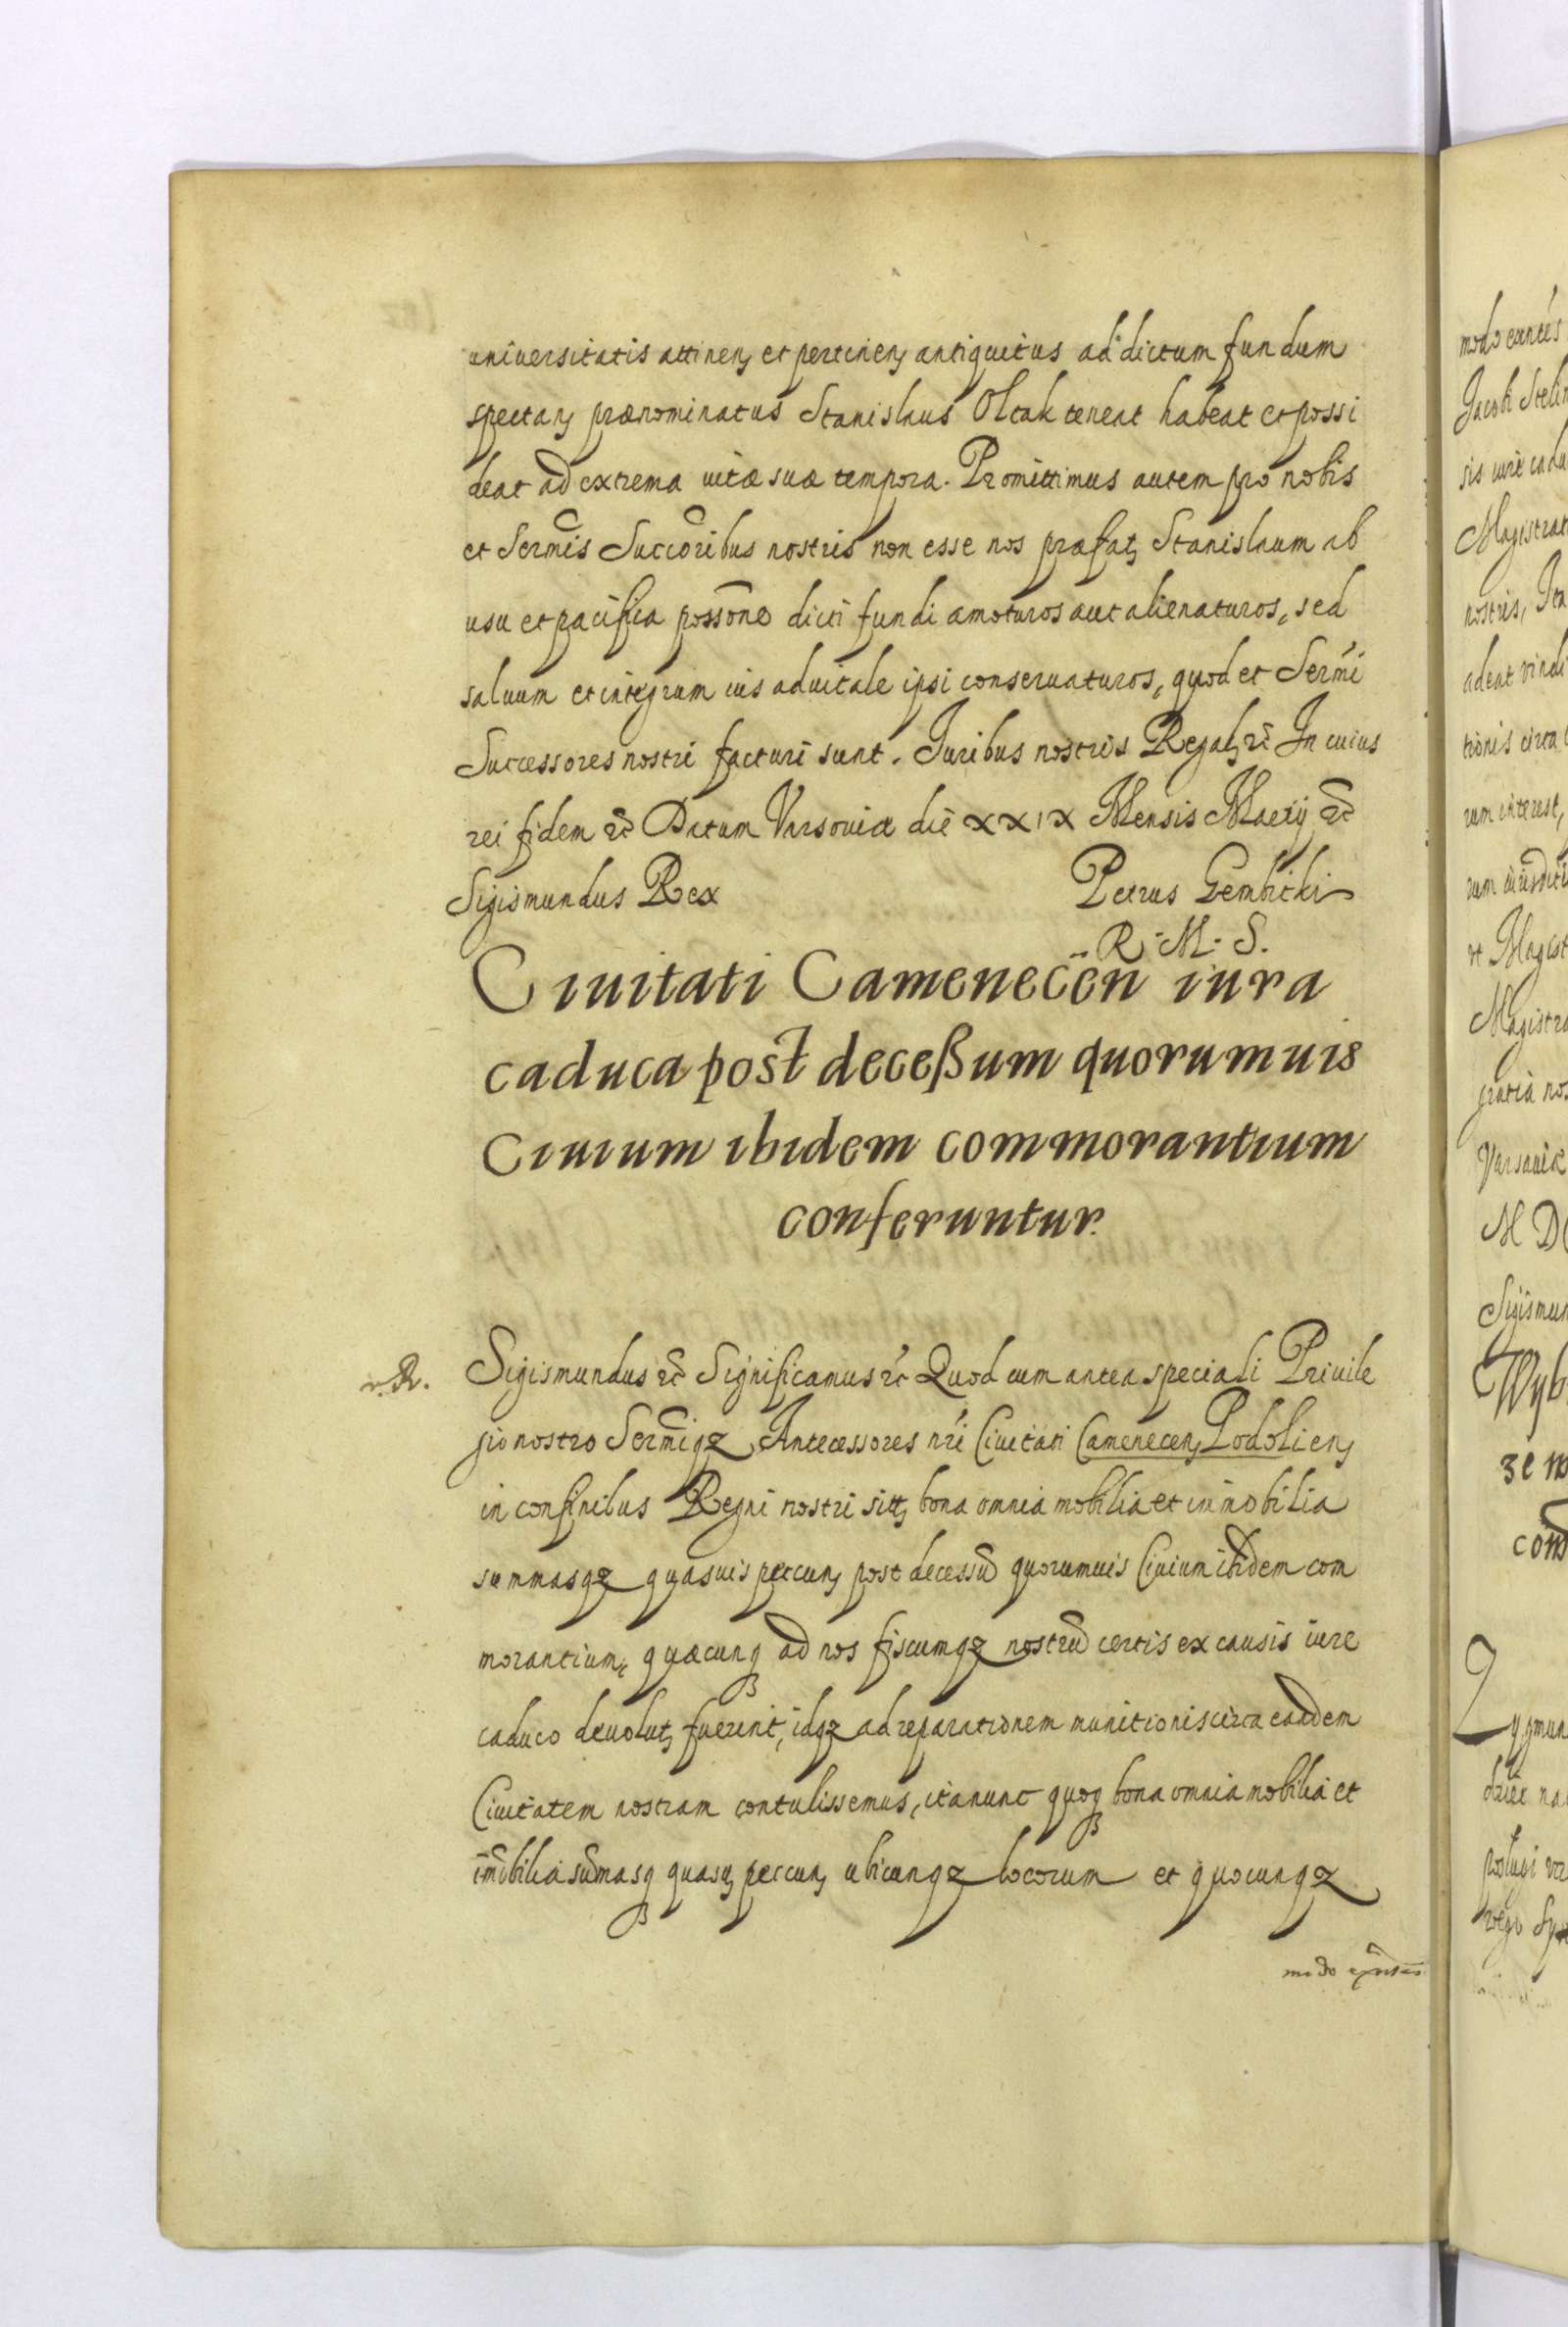 universitatis attinen et pertinen antiquitus ad dictum fundum
spectan prænominatus Stanislaus Oltak teneat habeat et possi
deat ad extrema vitæ suæ tempora. Promittimus autem pro nobis
et Sermis Succoribus nostris non esse nos præfat Stanislaum ab
usu et pacifica possone dicti fundi amoturos aut alienaturos, sed
saluum et integrum ius aduitale ipsi conseruaturos, quod et Sermi
Successores nostri facturi sunt. Juribus nostris Regal etc In cuius
rei fidem etc Datum Varsouiæ die XXIX Mensis Martij etc
Sigismundus Rex Petrus Gembicki
R. M. S.
Ciuitati Camenecen iura
caduca post deceßum quorumuis
Ciuium ibidem commorantium
conferuntur.
Sigismundus etc Significamus etc Quod cum antea speciali Priuile
gio nostro Sermiqz Antecessores nri Ciuitati Camenecen Podolien
in confinibus Regni nostri sitt bona omnia mobilia et immobilia
summasqz quasuis pecun post decessū quorumuis Ciuium ibidem com
morantium, quæcunq ad nos fiscumqz nostrū certis ex causis iure
caduco deuolut fuerint, idqz ad reparationem munitionis circa eandem
Ciuitatem nostram contulissemus, ita nunc quoq bona omnia mobilia et
im̄obilia sum̄asq quasu pecun ubicunqz locorum et quocunqz
modo
modo euntes
Jacobi
sis iure cadu
Magistrat
nostris, Ita
adeat vindi
tionis circa
rum interest,
rum
et Magist
Magistra
gratia nos
Varsauiæ
M D
Sigismun
Wyb
ze
con
Zygmun